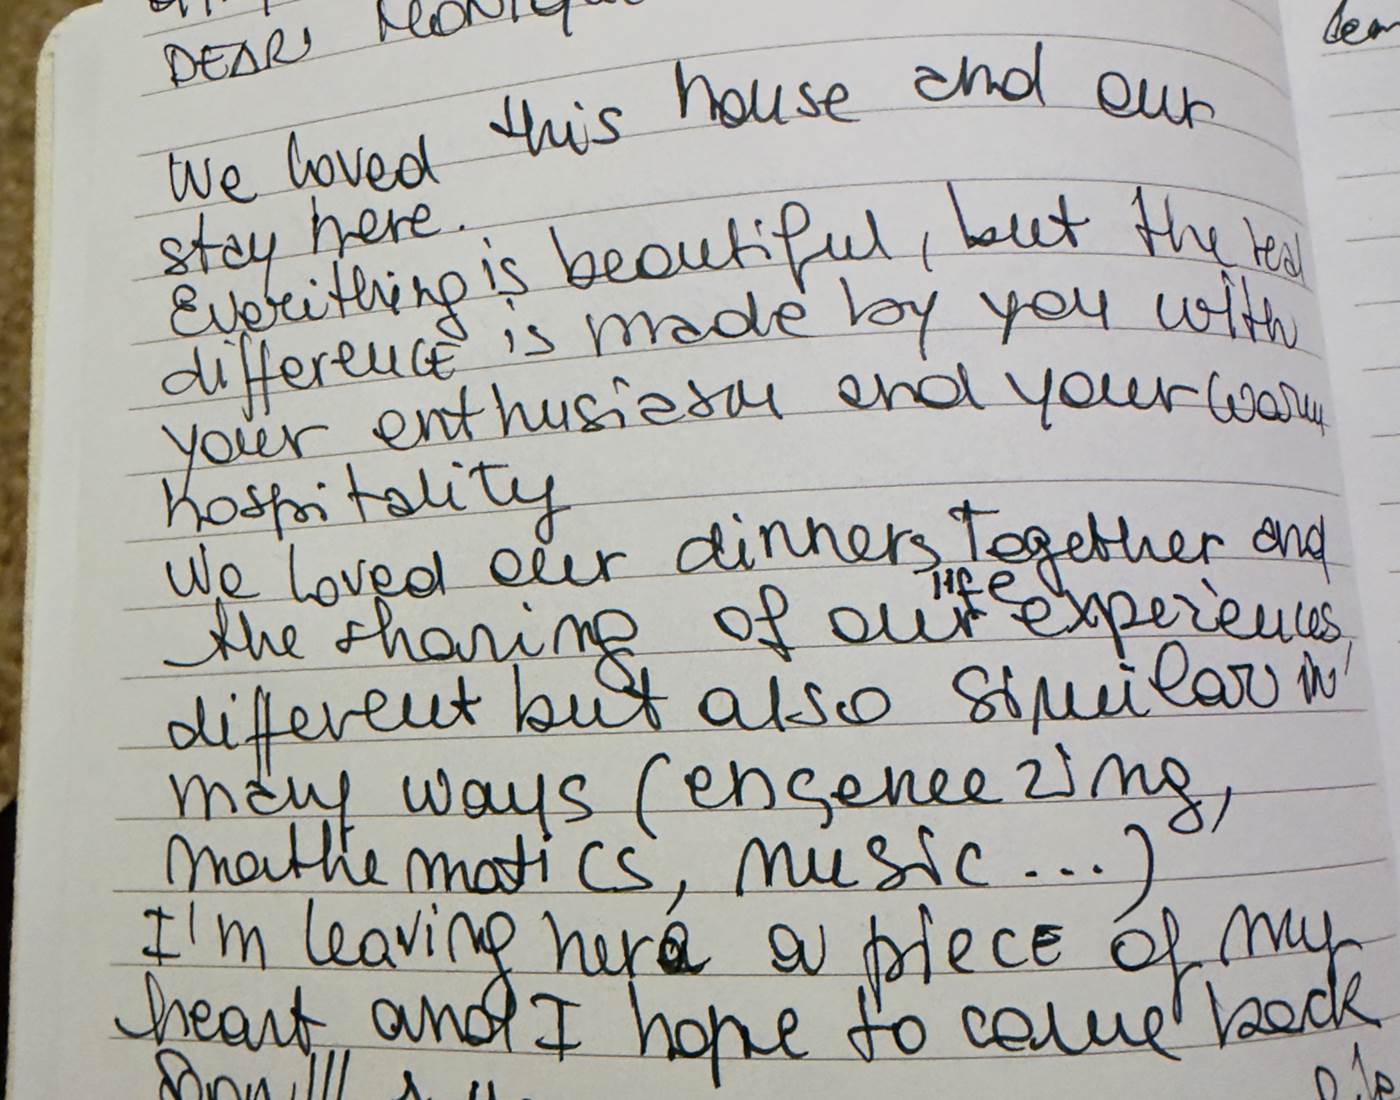 DEAR
We loved this house and our
stay here.
Everithing is beautiful, but the real
difference is made by you with
your enthusiasm and your warm
hospitality
We loved our dinners together and
the sharing of our life experiences
different but also similar in
many ways (engeneezing,
mathematics, music...)
I'm leaving here a piece of my
heart and I hope to come back